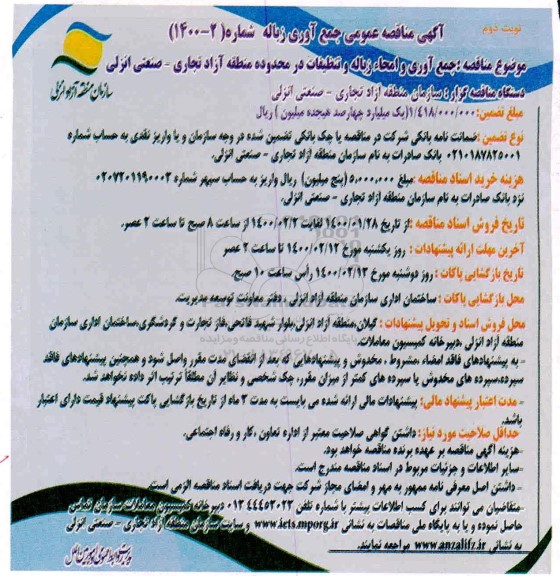 نوبت دوم
آگهی مناقصه عمومی جمع آوری زباله شماره( ۲-۱۴۰۰)
موضوع مناقصه :جمع آوری و امحاء زباله و تنظیفات در محدوده منطقه آزاد تجاری - صنعتی انزلی
سازمان منطقه آزاد انزلی
دستگاه مناقصه گزار : سازمان منطقه آزاد تجاری - صنعتی انزلی
مبلغ تضمین:۱/۴۱۸/۰۰۰/۰۰۰(یک میلیارد چهارصد هیجده میلیون ) ریال
نوع تضمین :ضمانت نامه بانکی شرکت در مناقصه یا چک بانکی تضمین شده در وجه سازمان و یا واریز نقدی به حساب شماره
۰۲۱۰۱۸۷۸۲۵۰۰۱ بانک صادرات به نام سازمان منطقه آزاد تجاری - صنعتی انزلی.
هزینه خرید اسناد مناقصه :مبلغ ۵,۰۰۰,۰۰۰ (پنج میلیون) ریال واریز به حساب سپهر شماره ۰۲۰۷۲۰۱۱۹۰۰۰۲
نزد بانک صادرات به نام سازمان منطقه آزاد تجاری - صنعتی انزلی.
تاریخ فروش اسناد مناقصه :از تاریخ ۱۴۰۰/۰۱/۲۸ لغایت ۱۴۰۰/۰۲/۲ از ساعت ۸ صبح تا ساعت ۲ عصر.
آخرین مهلت ارائه پیشنهادات : روز یکشنبه مورخ ۱۴۰۰/۰۲/۱۲ تا ساعت ۲ عصر
تاریخ بازگشایی پاکات : روز دوشنبه مورخ ۱۴۰۰/۰۲/۱۳ راس ساعت ۱۰ صبح.
محل بازگشایی پاکات : ساختمان اداری سازمان منطقه آزاد انزلی ، دفتر معاونت توسعه مدیریت.
محل فروش اسناد و تحویل پیشنهادات : گیلان،منطقه آزاد انزلی،بلوار شهید فاتحی،فاز تجارت و گردشگری،ساختمان اداری سازمان
منطقه آزاد انزلی ،دبیرخانه کمیسیون معاملات
- به پیشنهادهای فاقد امضاء ،مشروط ، مخدوش و پیشنهادهایی که بعد از انقضای مدت مقرر واصل شود و همچنین پیشنهادهای فاقد
سپرده،سپرده های مخدوش یا سپرده های کمتر از میزان مقرر، چک شخصی و نظایر آن مطلقاً ترتیب اثر داده نخواهد شد.
- مدت اعتبار پیشنهاد مالی: پیشنهادات مالی ارائه شده می بایست به مدت ۳ ماه از تاریخ بازگشایی پاکت پیشنهاد قیمت دارای اعتبار
باشد.
حداقل صلاحیت مورد نیاز: داشتن گواهی صلاحیت معتبر از اداره تعاون ،کار و رفاه اجتماعی.
-هزینه آگهی مناقصه بر عهده برنده مناقصه خواهد بود.
-سایر اطلاعات و جزئیات مربوط در اسناد مناقصه مندرج است.
- داشتن اصل معرفی نامه ممهور به مهر و امضای مجاز شرکت جهت دریافت اسناد مناقصه الزامی است.
-متقاضیان می توانند برای کسب اطلاعات بیشتر با شماره تلفن ۴۴۴۵۳۰۲۳ ۰۱۳ دبیرخانه کمیسیون معاملات سازمان تماس
حاصل نموده و یا به پایگاه ملی مناقصات به نشانی www.iets.mporg.ir و سایت سازمان منطقه آزاد تجاری - صنعتی انزلی
به نشانی www.anzalifz.ir مراجعه نمایند.